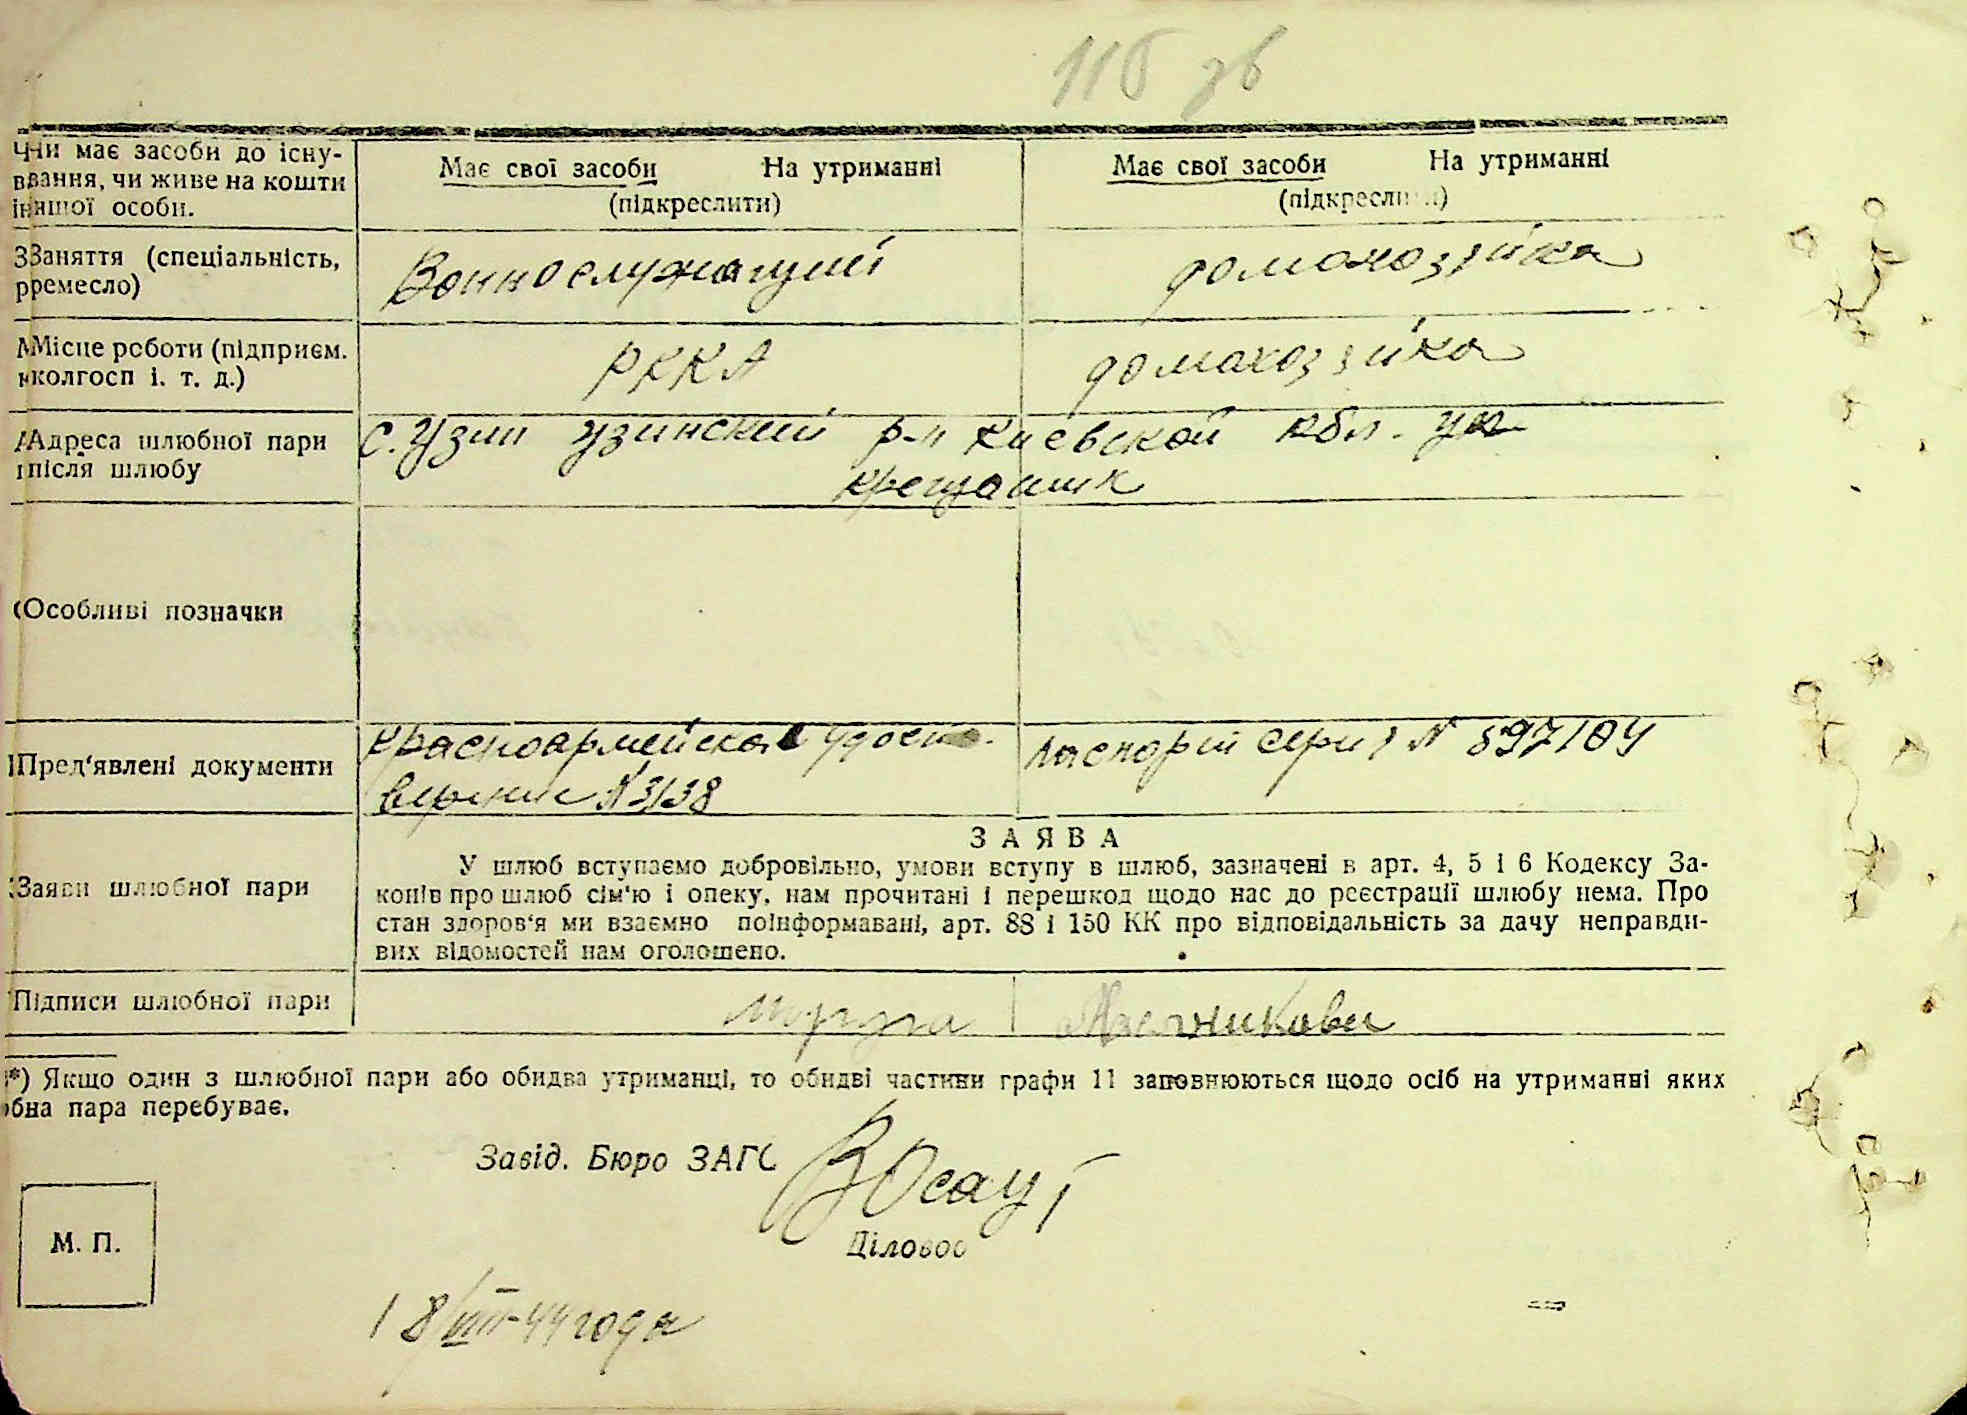 116 зв
Чи має засоби до існу-
вання, чи живе на кошти
іншої особи.
Має свої засоби На утриманні
(підкреслити)
Має свої засоби На утриманні
(підкреслити)
Заняття (спеціальність,
ремесло)
Воннослужащий
домохозяйка
Місце роботи (підприєм.
колгосп і. т. д.)
РККА
домахозяйка
Адреса шлюбної пари
після шлюбу
с. Узин узинский р-н Киевской обл. ул
Крещатик
Особливі позначки
Пред'явлені документи
Красноармейская удосто-
верение N 3138
паспорт серия N 897104
Заяви шлюбної пари
ЗАЯВА
У шлюб вступаємо добровільно, умови вступу в шлюб, зазначені в арт. 4, 5 і 6 Кодексу За-
конів про шлюб сім'ю і опеку, нам прочитані і перешкод щодо нас до реєстрації шлюбу нема. Про
стан здоров'я ми взаємно поінформавані, арт. 88 і 150 КК про відповідальність за дачу неправди-
вих відомостей нам оголошено.
Підписи шлюбної пари
*) Якщо один з шлюбної пари або обидва утриманці, то обидві частини графи 11 заповнюються щодо осіб на утриманні яких
бна пара перебуває.
Завід. Бюро ЗАГС
Діловод
М. П.
18/VIII-44 года